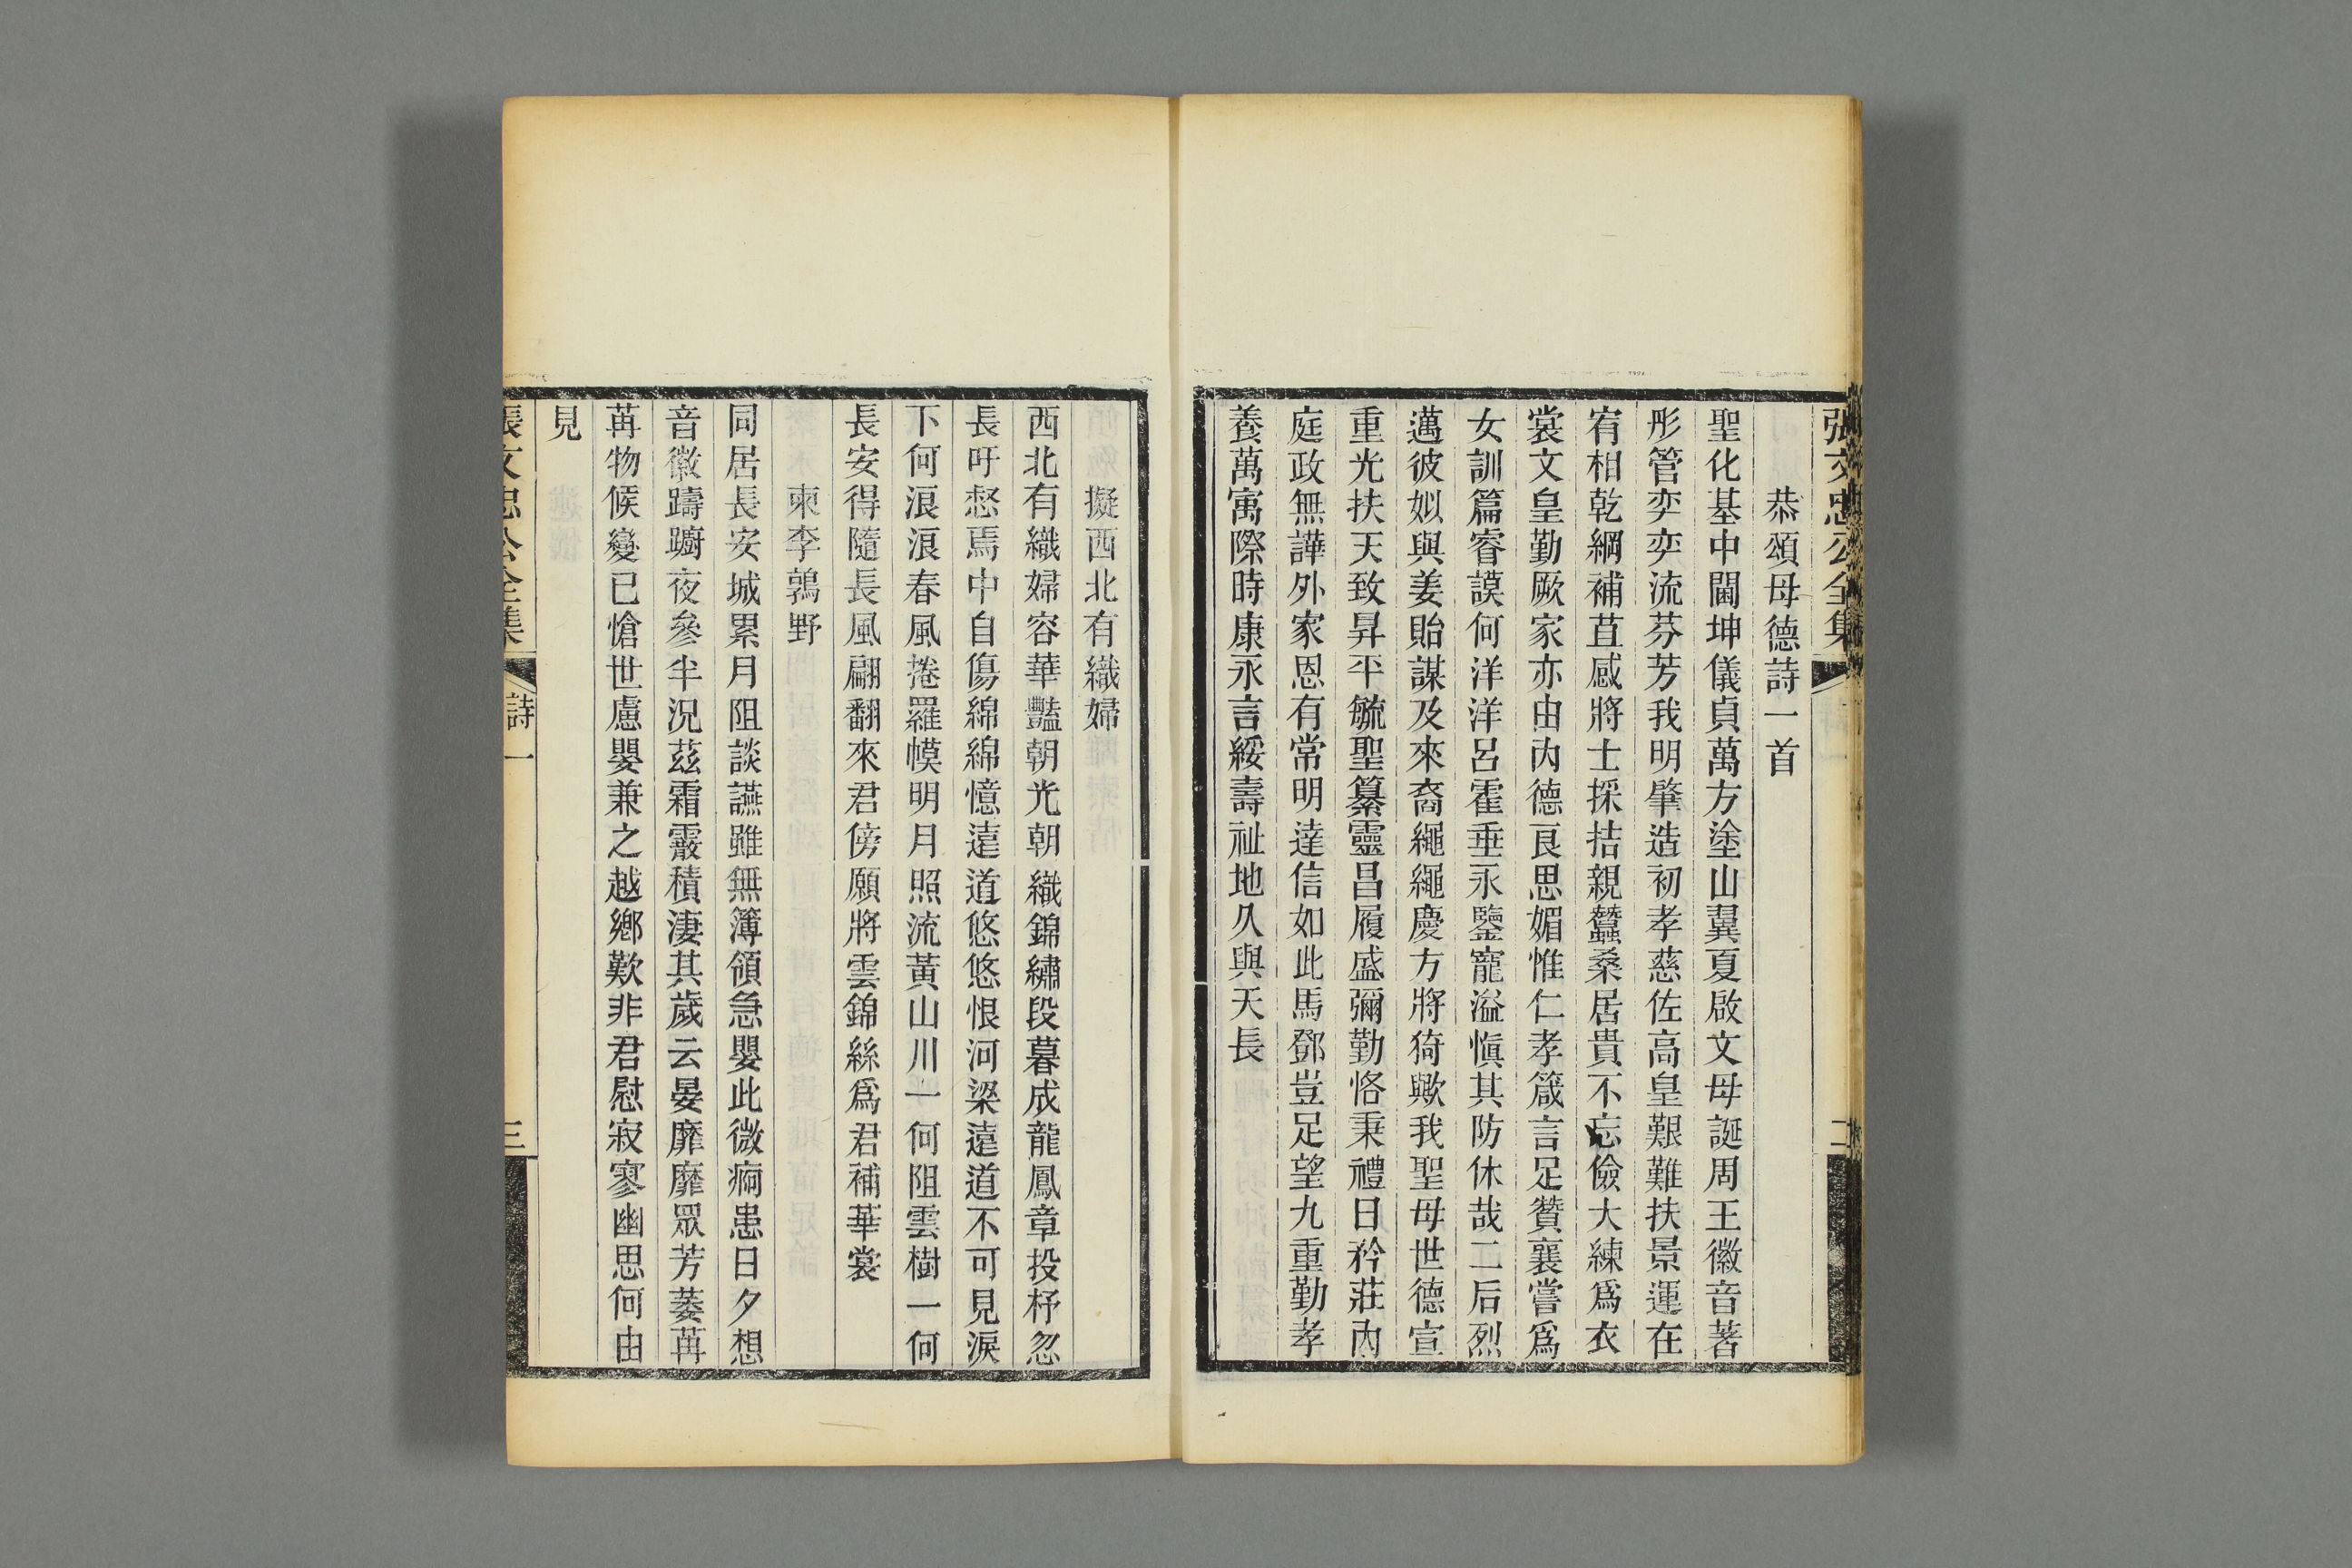 張文忠公全集
二
恭頌母德詩一首
聖化基中閫坤儀貞萬方塗山翼夏啟文母誕周王徽音著
彤管奕奕流芬芳我明肇造初孝慈佐高皇艱難扶景運在
宥相乾綱補苴感將士採拮親蠶桑居貴不忘儉大練爲衣
裳文皇勤厥家亦由內德良思媚惟仁孝箴言足贊襄嘗爲
女訓篇睿謨何洋洋呂霍垂永鑒寵溢愼其防休哉二后烈
邁彼姒與姜貽謀及來裔繩繩慶方將猗歟我聖母世德宣
重光扶天致昇平毓聖纂靈昌履盛彌勤恪秉禮日矜莊內
庭政無譁外家恩有常明達信如此馬鄧豈足望九重勤孝
養萬㝢際時康永言綏壽祉地久與天長
擬西北有織婦
西北有織婦容華豔朝光朝織錦繡段暮成龍鳳章投杼忽
長吁惄焉中自傷綿綿憶遠道悠悠恨河梁遠道不可見淚
下何浪浪春風捲羅幙明月照流黃山川一何阻雲樹一何
長安得隨長風翩翻來君傍願將雲錦絲爲君補華裳
柬李鶉野
同居長安城累月阻談讌雖無簿領急嬰此微痾患日夕想
音徽躊躕夜參半況茲霜霰積淒其歲云晏靡靡眾芳萎苒
苒物候變已愴世慮嬰兼之越鄉歎非君慰寂寥幽思何由
見
張文忠公全集
詩一
三